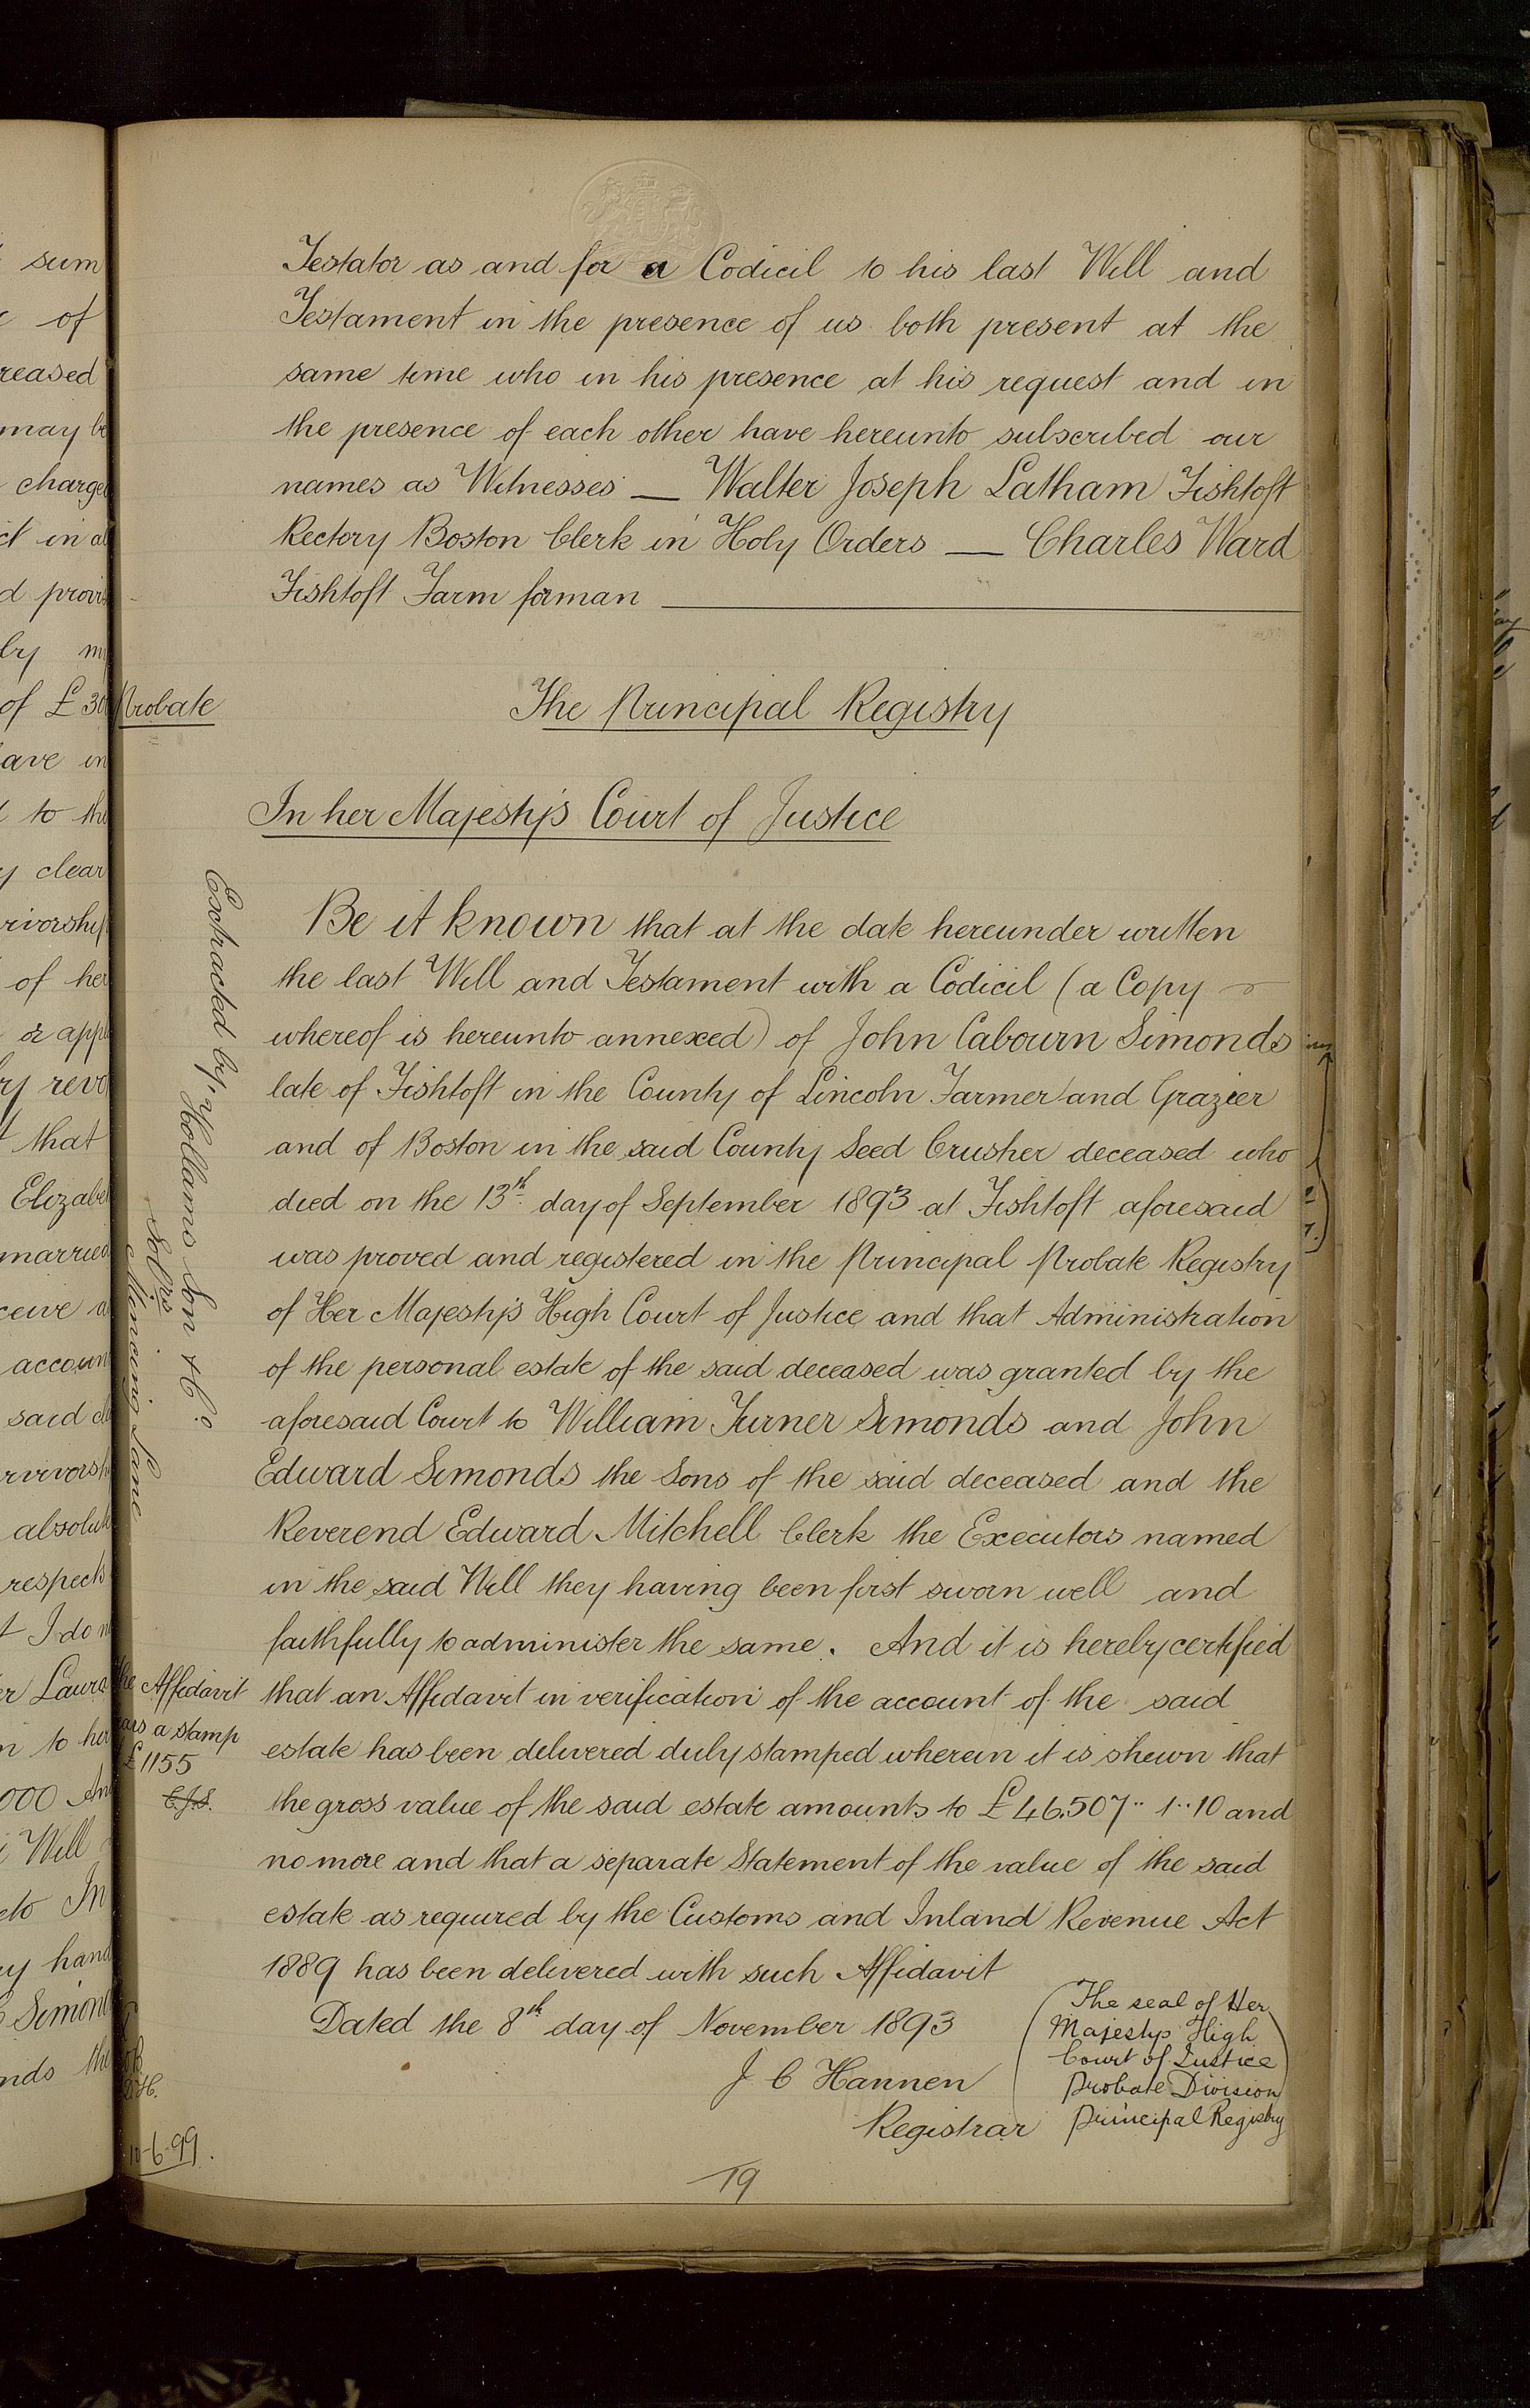 Testator as and for a Codicil to his last Will and
Testament in the presence of us both present at the
same time who in his presence at his request and in
the presence of each other have hereunto subscribed our
names as Witnesses — Walter Joseph Latham Fishtoft
Rectory Boston Clerk in Holy Orders — Charles Ward
Fishtoft Farm forman
Probate
The Principal Registry
In her Majesty's Court of Justice
Be it known that at the date hereunder written
the last Will and Testament with a Codicil (a Copy
whereof is hereunto annexed) of John Cabourn Simonds
late of Fishtoft in the County of Lincoln Farmer and Grazier
and of Boston in the said County Seed Crusher deceased who
died on the 13th day of September 1893 at Fishtoft aforesaid
was proved and registered in the Principal Probate Registry
of Her Majesty's High Court of Justice and that Administration
of the personal estate of the said deceased was granted by the
aforesaid Court to William Turner Simonds and John
Edward Simonds the Sons of the said deceased and the
Reverend Edward Mitchell Clerk the Executors named
in the said Will they having been first sworn well and
faithfully to administer the same. And it is hereby certified
that an Affidavit in verification of the account of the said
estate has been delivered duly stamped wherein it is shewn that
the gross value of the said estate amounts to £46.507..1..10 and
no more and that a separate Statement of the value of the said
estate as required by the Customs and Inland Revenue Act
1889 has been delivered with such Affidavit
Dated the 8th day of November 1893
J C Hannen
Registrar
The seal of Her
Majesty's High
Court of Justice
Probate Division
Principal Registry
Extracted by Hollams Son & Co
Solrs
Mincing Lane
the Affidavit
a stamp
£1155
C.J.S.
10-6-99.
19
sum
of
may be
charge
in
by
of £
to the
clear
of her
that
married
said
absolute
respects
I do
Laura
to her
Will
In
hand
Simonds
the